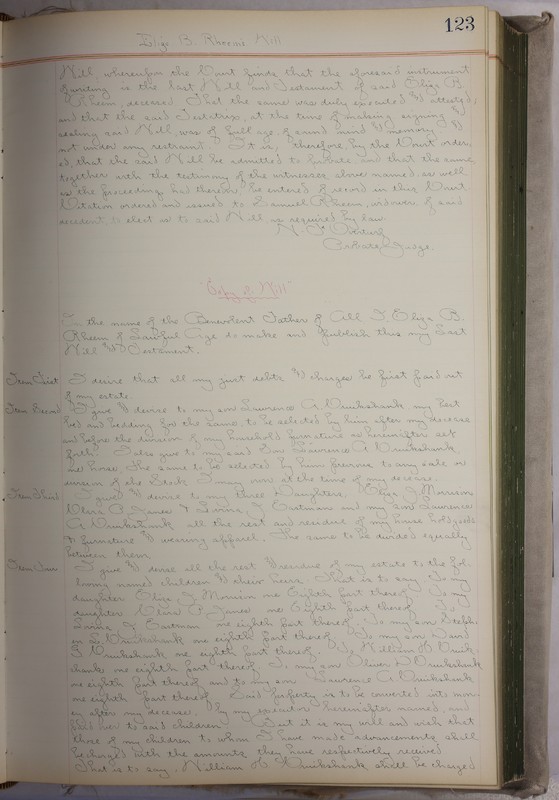 123
Eliza B. Rheem's Will
Will, whereupon the Court finds that the aforesaid instrument
of writing is the last Will and Testament of said Eliza B.
Rheem, deceased. That the same was duly executed & attested,
and that the said Testatrix, at the time of making, signing &
sealing said Will, was of full age, of sound mind & memory &
not under any restraint. It is, therefore, by the Court order-
ed, that the said Will be admitted to Probate and that the same,
together with the testimony of the witnesses above named, as well
as the proceeding had thereon, be entered of record in this Court
Citation ordered and issued to Samuel Rheem, widower of said
decedent, to elect as to said Will, as required by law.
Probate Judge.
"Copy of Will"
In the name of the Benevolent Father of All I Eliza B.
Rheem of Lawful Age do make and publish this my Last
Will & Testament.
Item First I desire that all my just debts & charges be first paid out
of my estate.
Item Second I give & devise to my son Lawrence A. Cruikshank, my best
bed and bedding for the same, to be selected by him after my decease
and before the division of my household furniture as hereinafter set
forth. I also give to my said Son Lawrence A. Cruikshank
one horse. The same to be selected by him previous to any sale or
division of the Stock I may own at the time of my decease.
Item Third I give & devise to my three Daughters, Eliza J. Morrison,
Clara P. Janes & Lovina J. Eastman and my son Lawrence
A. Cruikshank all the rest and residue of my house hold goods
& furniture & wearing apparel. The same to be divided equally
between them
Item Four I give & devise all the rest & residue of my estate to the fol-
lowing named children & their heirs. That is to say. To my
daughter Eliza J. Morrison one Eighth part thereof. To my
daughter Clara P. Janes one Eighth part thereof. To
Lovina J. Eastman one eighth part thereof. To my son Steph-
en L. Cruikshank one eighth part thereof. To my son David
Cruikshank one eighth part thereof. To William H. Cruik-
shank one eighth part thereof. To my son Oliver D. Cruikshank
one eighth part thereof and to my son Lawrence A. Cruikshank
one eighth part thereof. Said property is to be converted into mon-
ey after my decease, by my executor hereinafter named, and
paid over to said children. But it is my will and wish that
those of my children to whom I have made advancements shall
be charged with the amounts they have respectively received
That is to say, William H. Cruikshank shall be charged